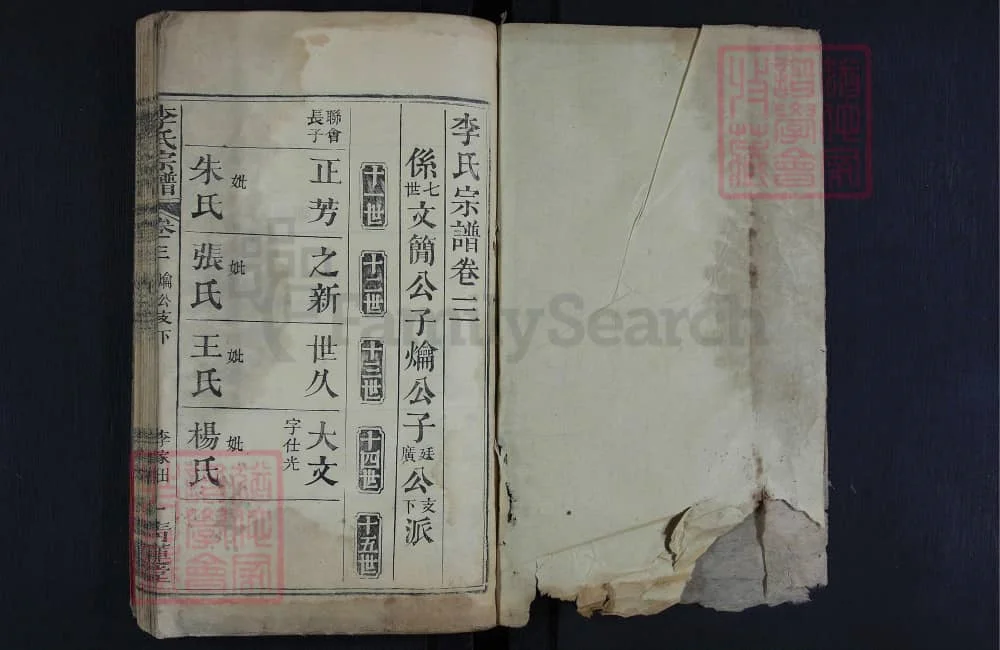 李氏宗譜卷三
係七世文簡公子爚公子廷廣公支下派
十一世 十二世 十三世 十四世 十五世
聯會長子 正芳 之新 世久 大文 字仕光
妣朱氏 妣張氏 妣王氏 妣楊氏
李氏宗譜 卷三 爚公支下 李家田 一 青蓮堂
FamilySearch
譜學會
譜學會